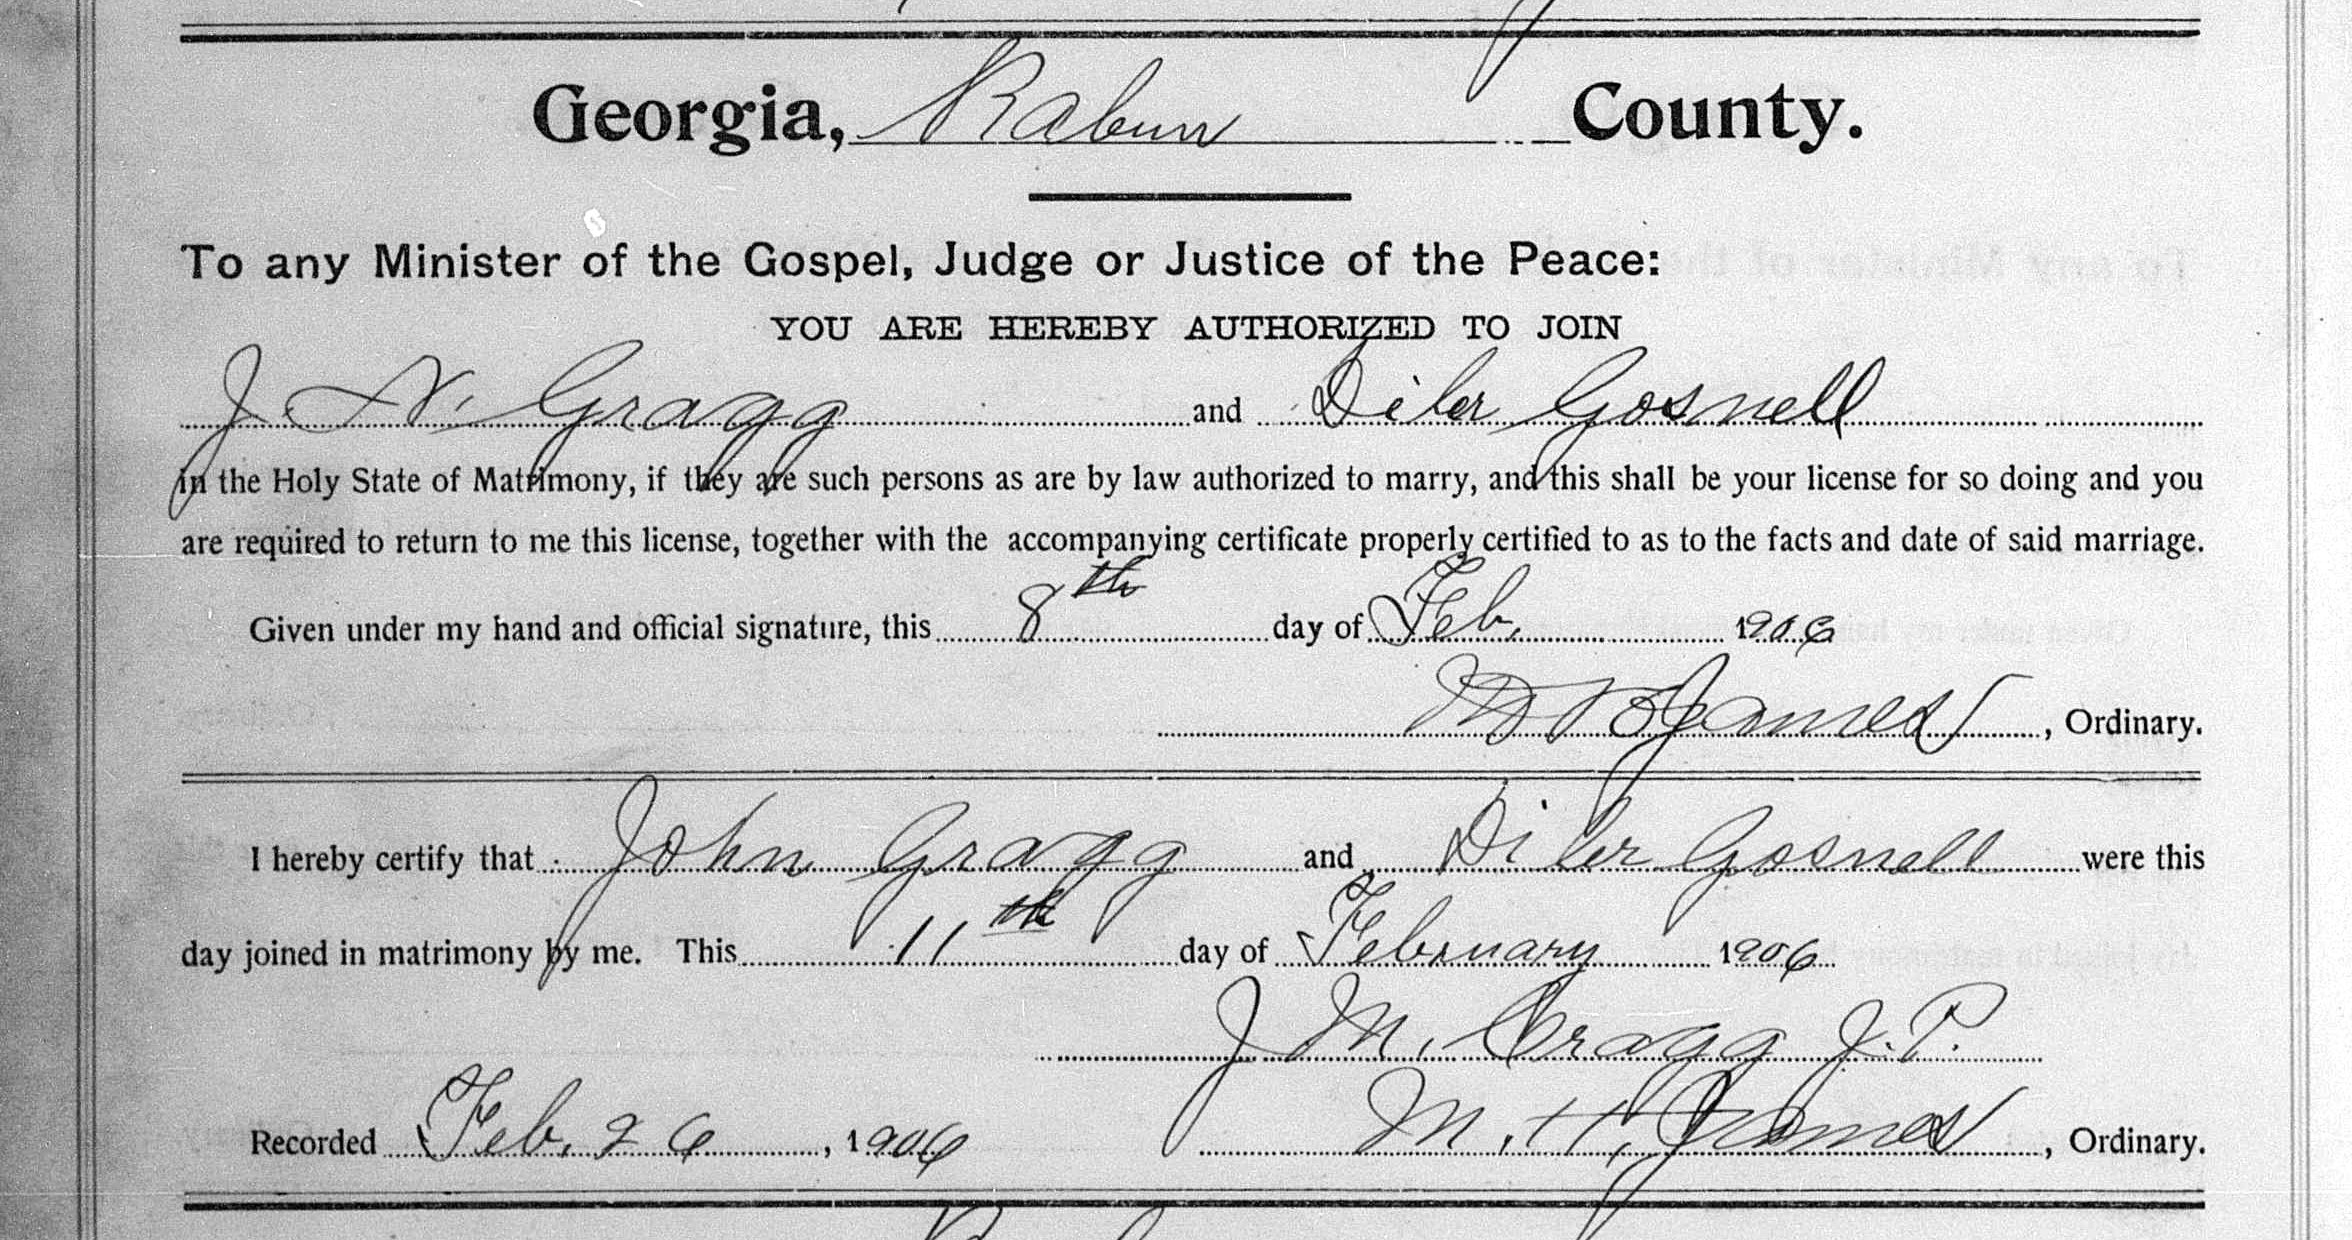 Georgia, Rabun County.
To any Minister of the Gospel, Judge or Justice of the Peace:
YOU ARE HEREBY AUTHORIZED TO JOIN
J. N. Gragg and Diler Gosnell
in the Holy State of Matrimony, if they are such persons as are by law authorized to marry, and this shall be your license for so doing and you
are required to return to me this license, together with the accompanying certificate properly certified to as to the facts and date of said marriage.
Given under my hand and official signature, this 8th day of Feb. 1906
James, Ordinary.
I hereby certify that John Gragg and Diler Gosnell were this
day joined in matrimony by me. This 11th day of February 1906
J. M. Gragg J. P.
Recorded Feb. 26, 1906 M. H. James, Ordinary.